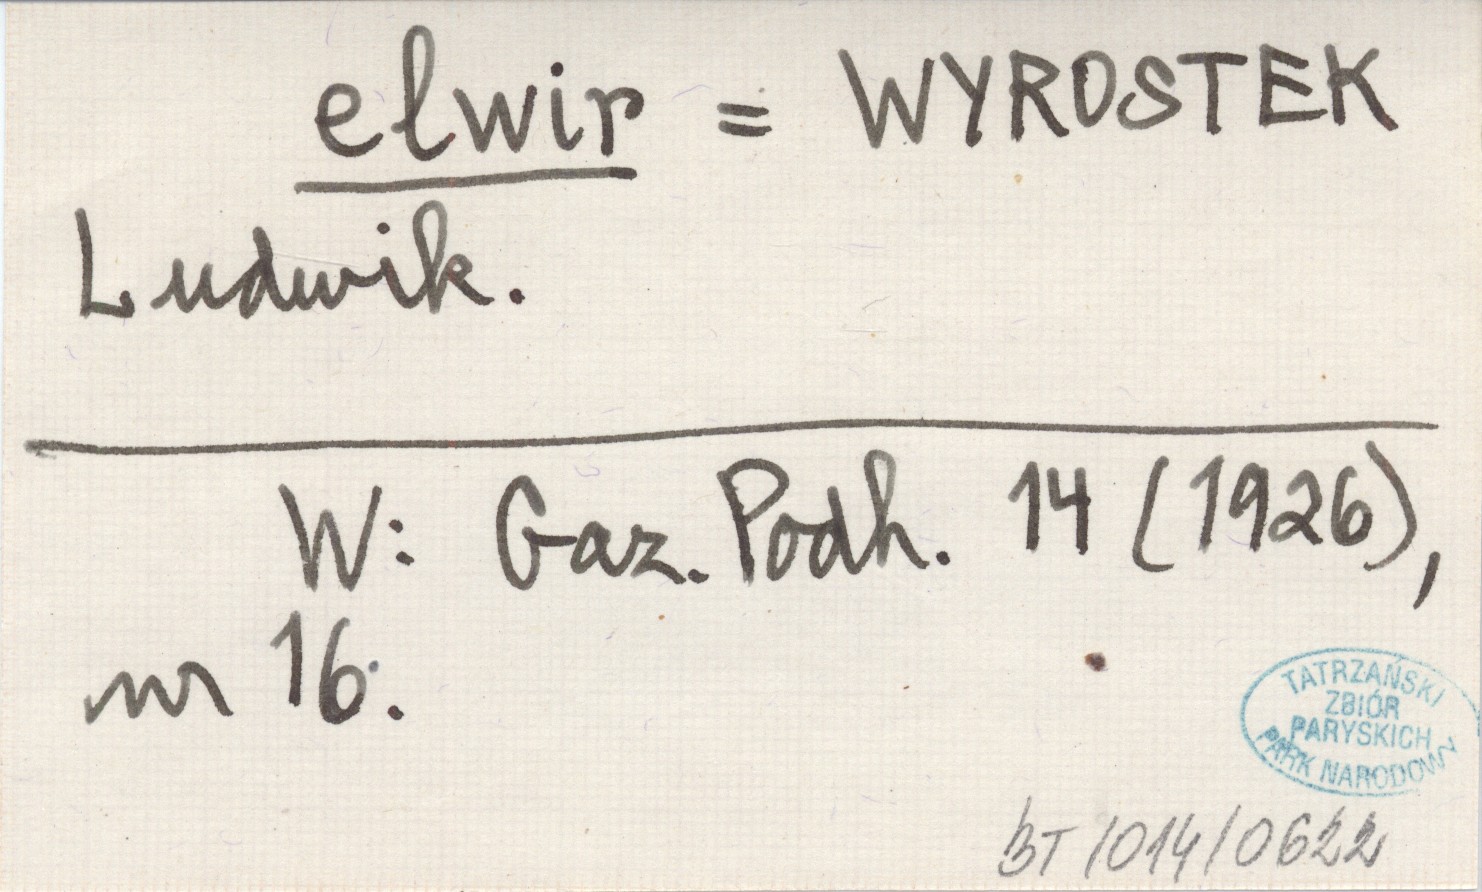 elwir = WYROSTEK
Ludwik.
W: Gaz. Podh. 14 (1926),
nr 16.
TATRZAŃSKI
ZBIÓR
PARYSKICH
PARK NARODOWY
BT/014/0622